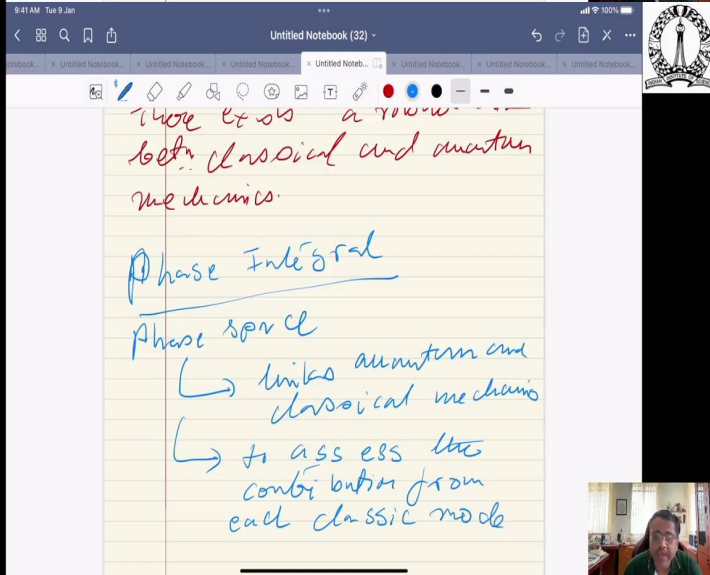 9:41 AM Tue 9 Jan
100%
Untitled Notebook (32)
Untitled Notebook...
Untitled Notebook...
Untitled Notebook...
Untitled Noteb...
Untitled Notebook...
Untitled Notebook...
Untitled Notebook...
There exists a
betn classical and quantum
mechanics.
Phase Integral
Phase space
links quantum and
classical mechanics
to assess the
contribution from
each classic mode